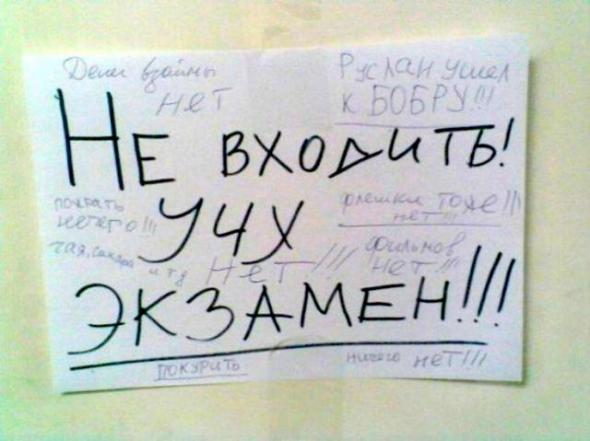 Денег взаймы
нет
Руслан ушёл
к БОБРУ!!!
НЕ ВХОДИТЬ!
пожрать
нечего!!!
чая, сахара и т д НЕТ!!!
УЧУ
флешки тоже!!!
нет!!!
фильмов
нет!!!
ЭКЗАМЕН!!!
ПОКУРИТЬ
ничего НЕТ!!!